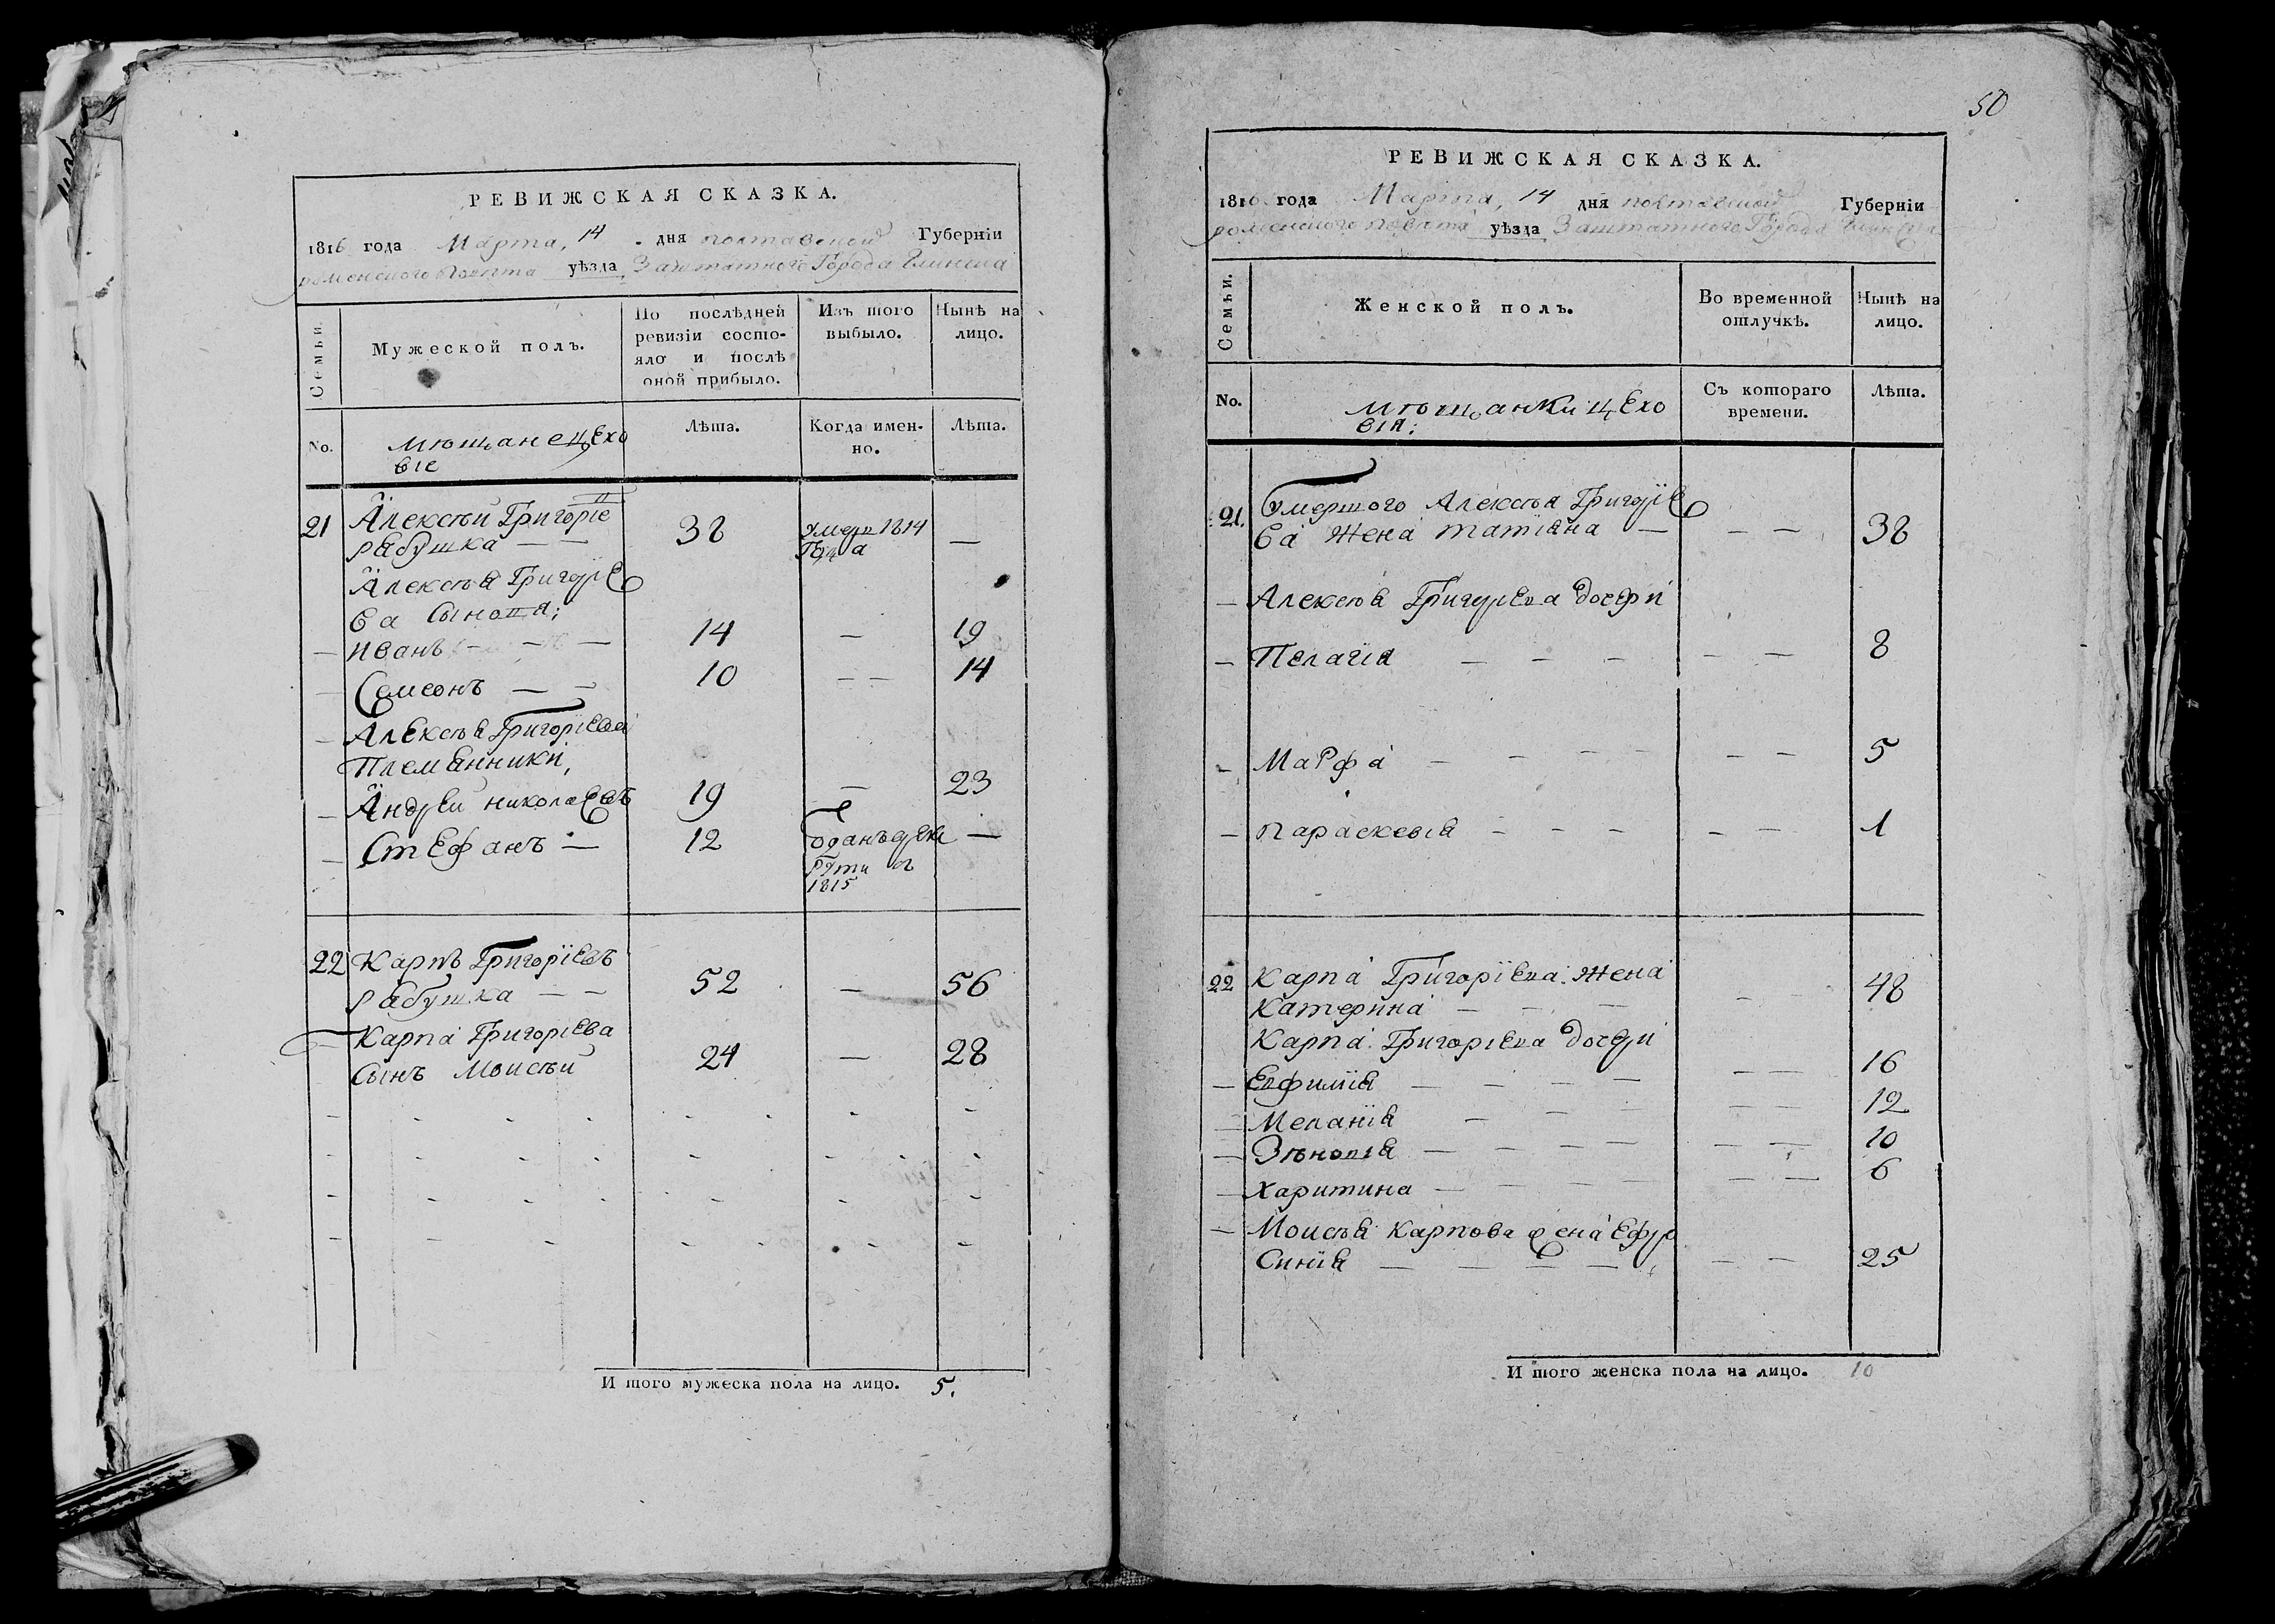 РЕВИЖСКАЯ СКАЗКА.
1816 года Марта, 14 дня полтавской Губерніи
роменского повѣта уѣзда Заштатного Города Глинска
Семьи.
Мужеской полъ.
По послѣдней ревизіи состояло и послѣ оной прибыло.
Изъ того выбыло.
Нынѣ на лицо.
No.
мѣщане цехо
віе
Лѣта.
Когда именно.
Лѣта.
21 Алексѣй Григоріе 38 умеръ 1814 —
рябушка — — Года
Алексѣя Григоріе
ва Сыновя;
— Иванъ — — — 14 — 19
— Семеонъ — — 10 — — 14
— Алексѣя Григоріева
Племянники,
— Андрей николаевъ 19 — 23
— Стефанъ — 12 Оданъ въ рек —
руты в
1815
22 Карпъ Григоріевъ
рябушка — — 52 — 56
— Карпа Григоріева
Сынъ Моисѣй 24 — 28
И того мужеска пола на лицо. 5.
50
РЕВИЖСКАЯ СКАЗКА.
1816 года Марта, 14 дня полтавской Губерніи
роменского повѣта уѣзда Заштатного Города Глинска
Семьи.
Женской полъ.
Во временной отлучкѣ.
Нынѣ на лицо.
No.
мѣщанки цехо
вія:
Съ котораго времени.
Лѣта.
21. Умершого Алексѣя Григоріе
ва жена татіяна — — — 38
— Алексѣя Григорева дочери
— Пелагія — — — — — 8
— Марфа — — — — — 5
— параскевія — — — — — 1
22 Карпа Григоріева жена 48
Катерина — — —
Карпа Григоріева дочери
— Евфимія — — — — — — 16
— Меланія — — — — — 12
— Зѣновія — — — — — — 10
— Харитина — — — — — — 6
— Моисѣя Карпова жена Ефро
Синія — — — — — — 25
И того женска пола на лицо. 10